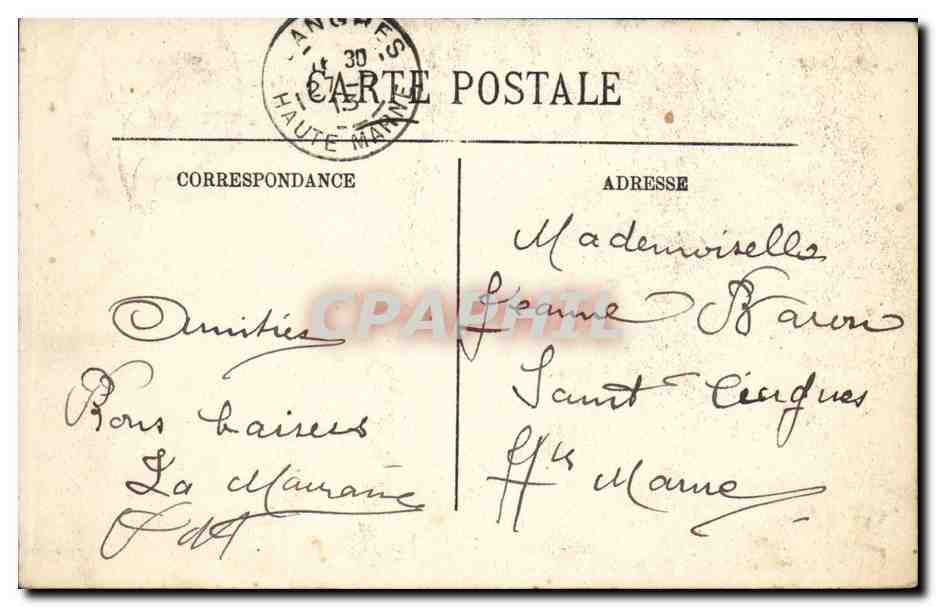 LANGRES
30
27
15
HAUTE MARNE
CARTE POSTALE
CORRESPONDANCE
ADRESSE
Mademoiselle
Jeanne Baron
Saint Ciergues
Hte Marne
Amitiés
Bons baisers
La Marraine
CPAPHIL